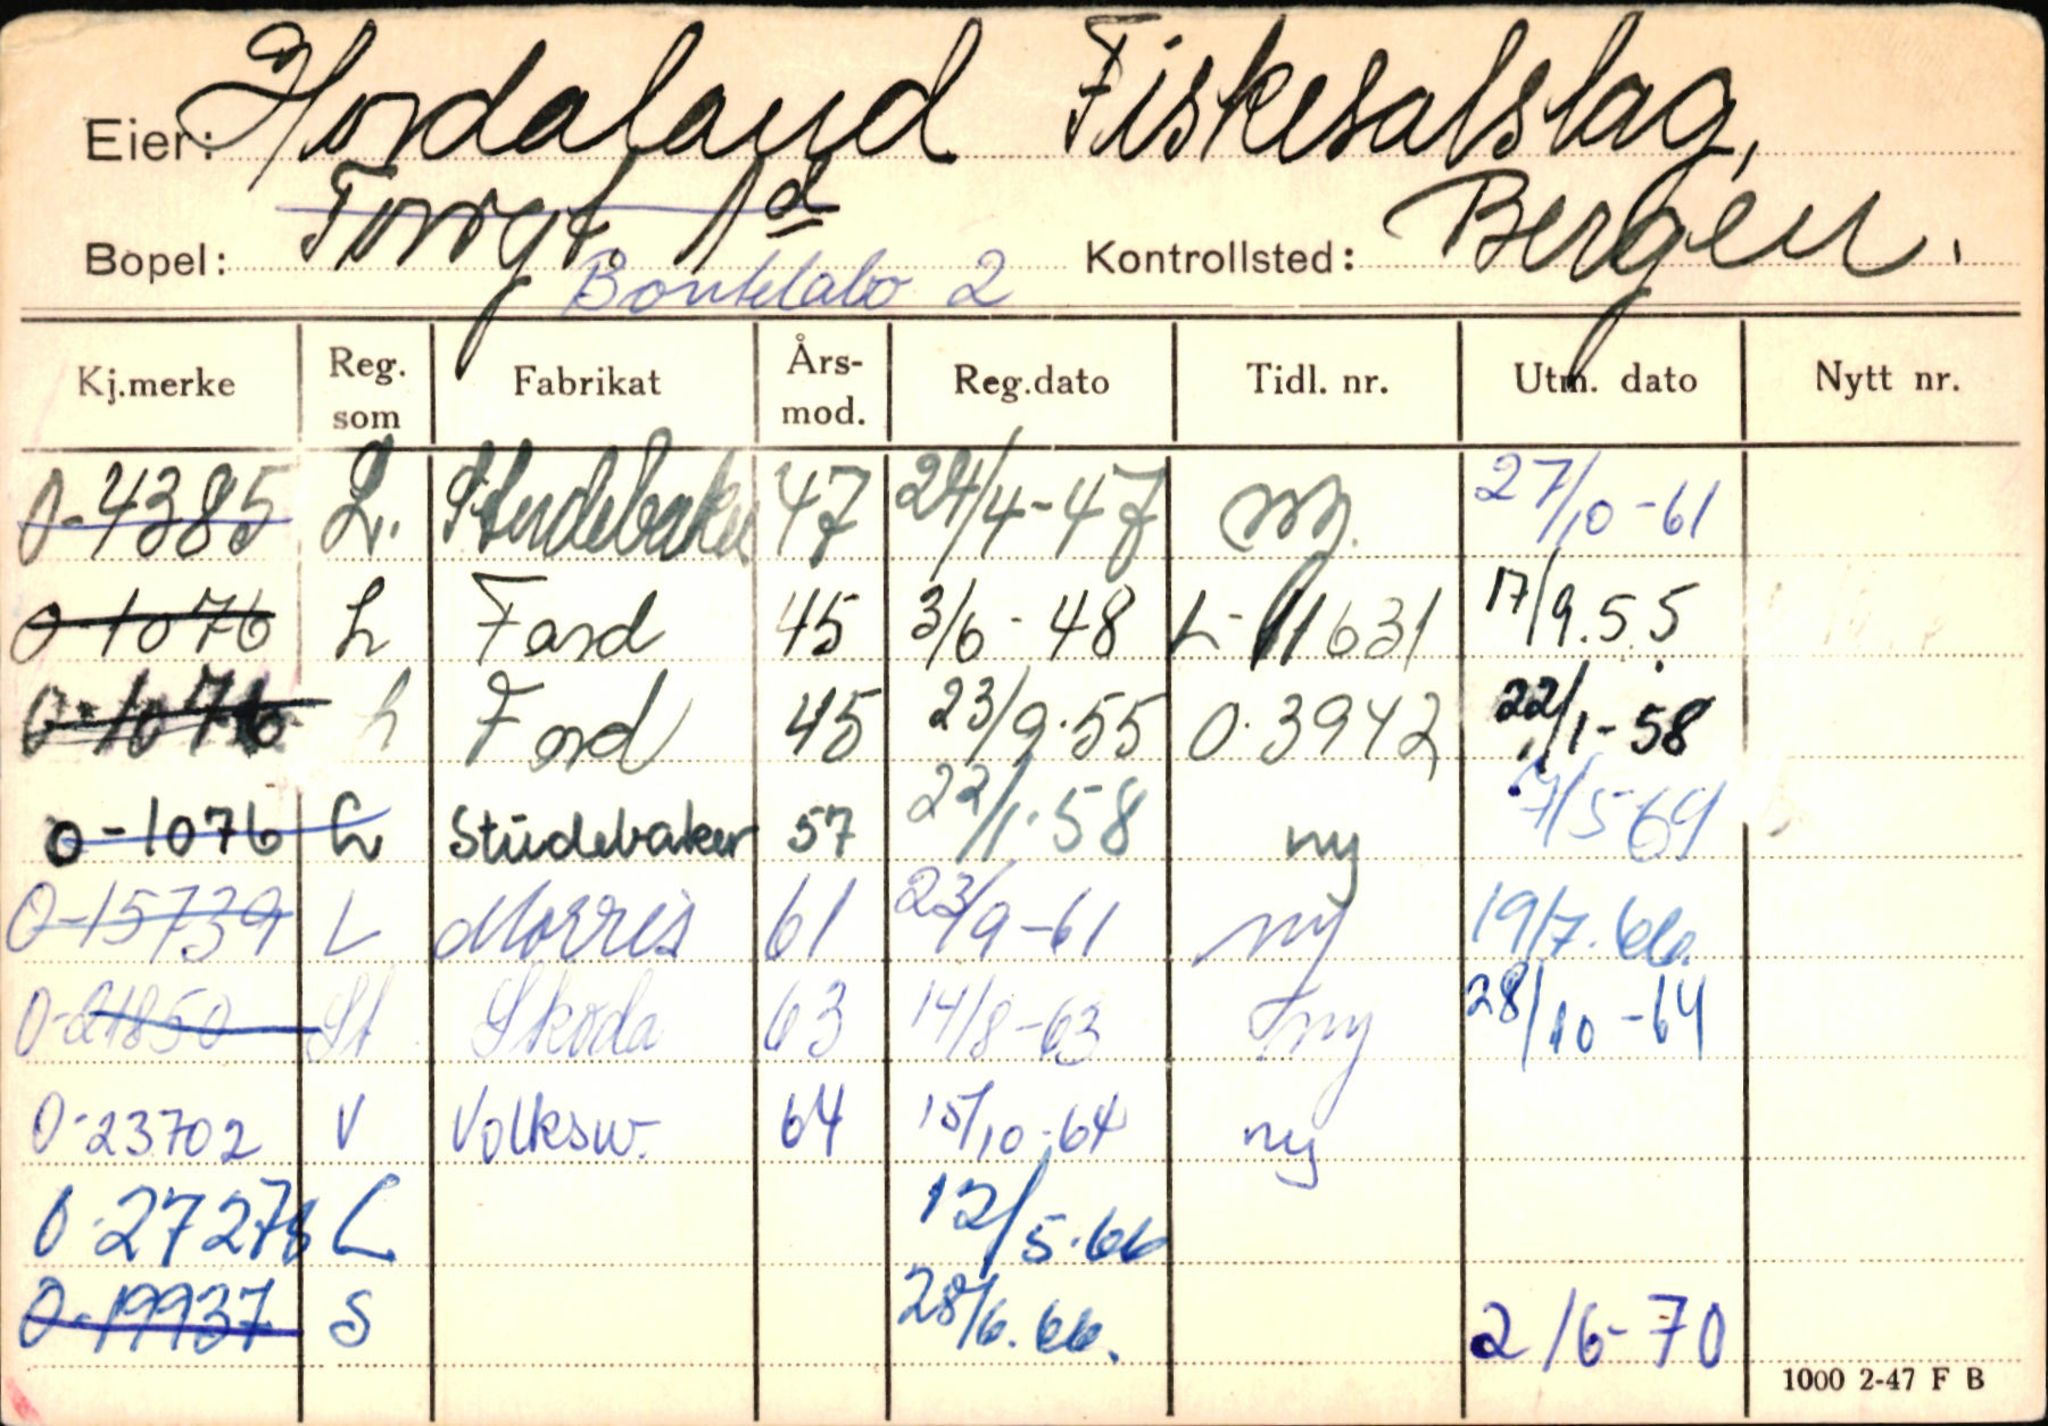 Eier: Hordaland Fiskesalslag,
Bopel: Torvgt. 1 d Kontrollsted: Bergen.
Bontelabo 2
Kj.merke Reg. som Fabrikat Års-mod. Reg.dato Tidl. nr. Utm. dato Nytt nr.
O-4385 L. Studebaker 47 24/4-47 ny. 27/10-61
O-1076 L Ford 45 3/6-48 L-11631 17/9.55
O-1076 L Ford 45 23/9.55 O.3942 22/1-58
O-1076 L Studebaker 57 22/1.58 ny 7/5 69
O-15739 L Morris 61 23/9-61 ny 19/7.66.
O-21850 St Skoda 63 14/8-63 ny 28/10-64
O-23702 V Volksw. 64 15/10-64 ny
O-27278 L 12/5.66
O-19937 S 28/6.66. 2/6-70
1000 2-47 F B